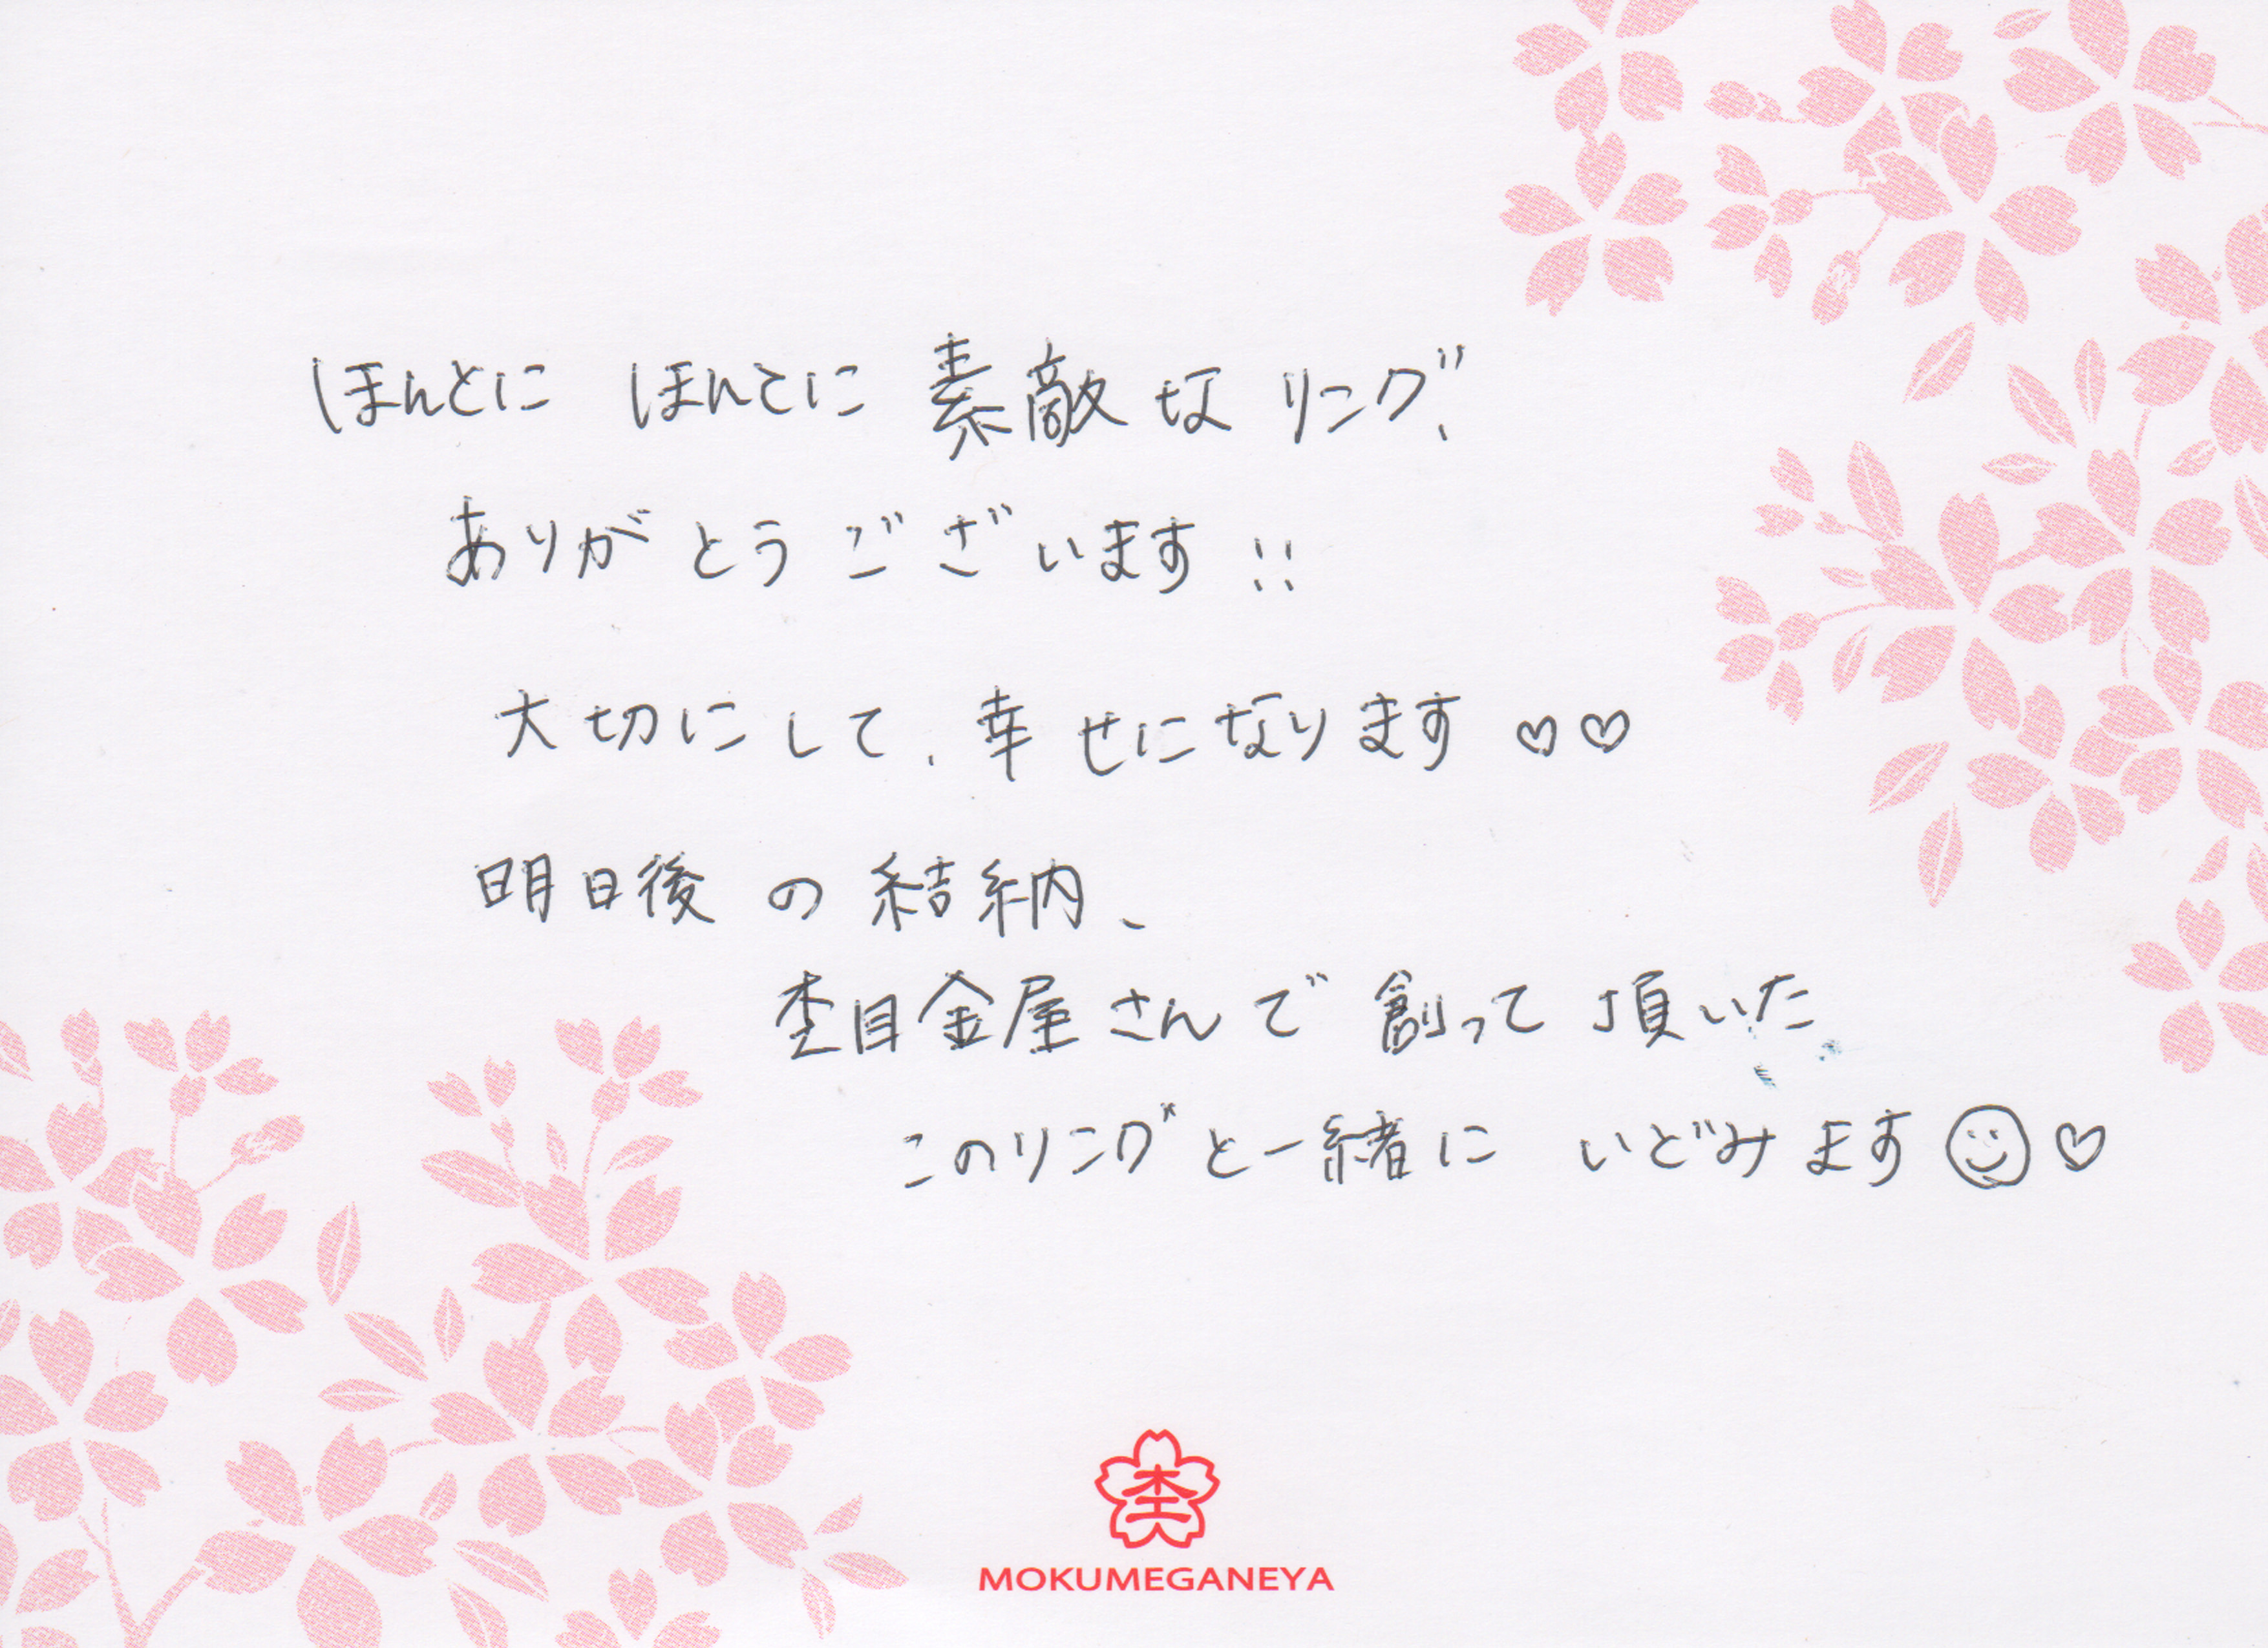 ほんとに ほんとに 素敵な リング、
ありがとうございます!!
大切にして、幸せになります♡♡
明日後の結納、
杢目金屋さんで創って頂いた
このリングと一緒に いどみます☺♡
杢
MOKUMEGANEYA